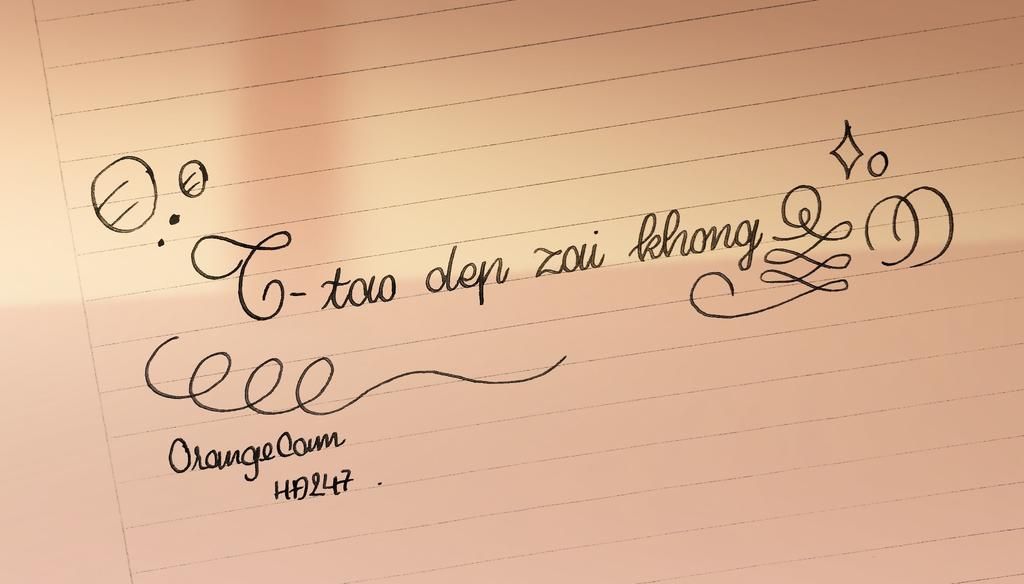 T- tao dep zai khong
OrangeCam
HĐ247